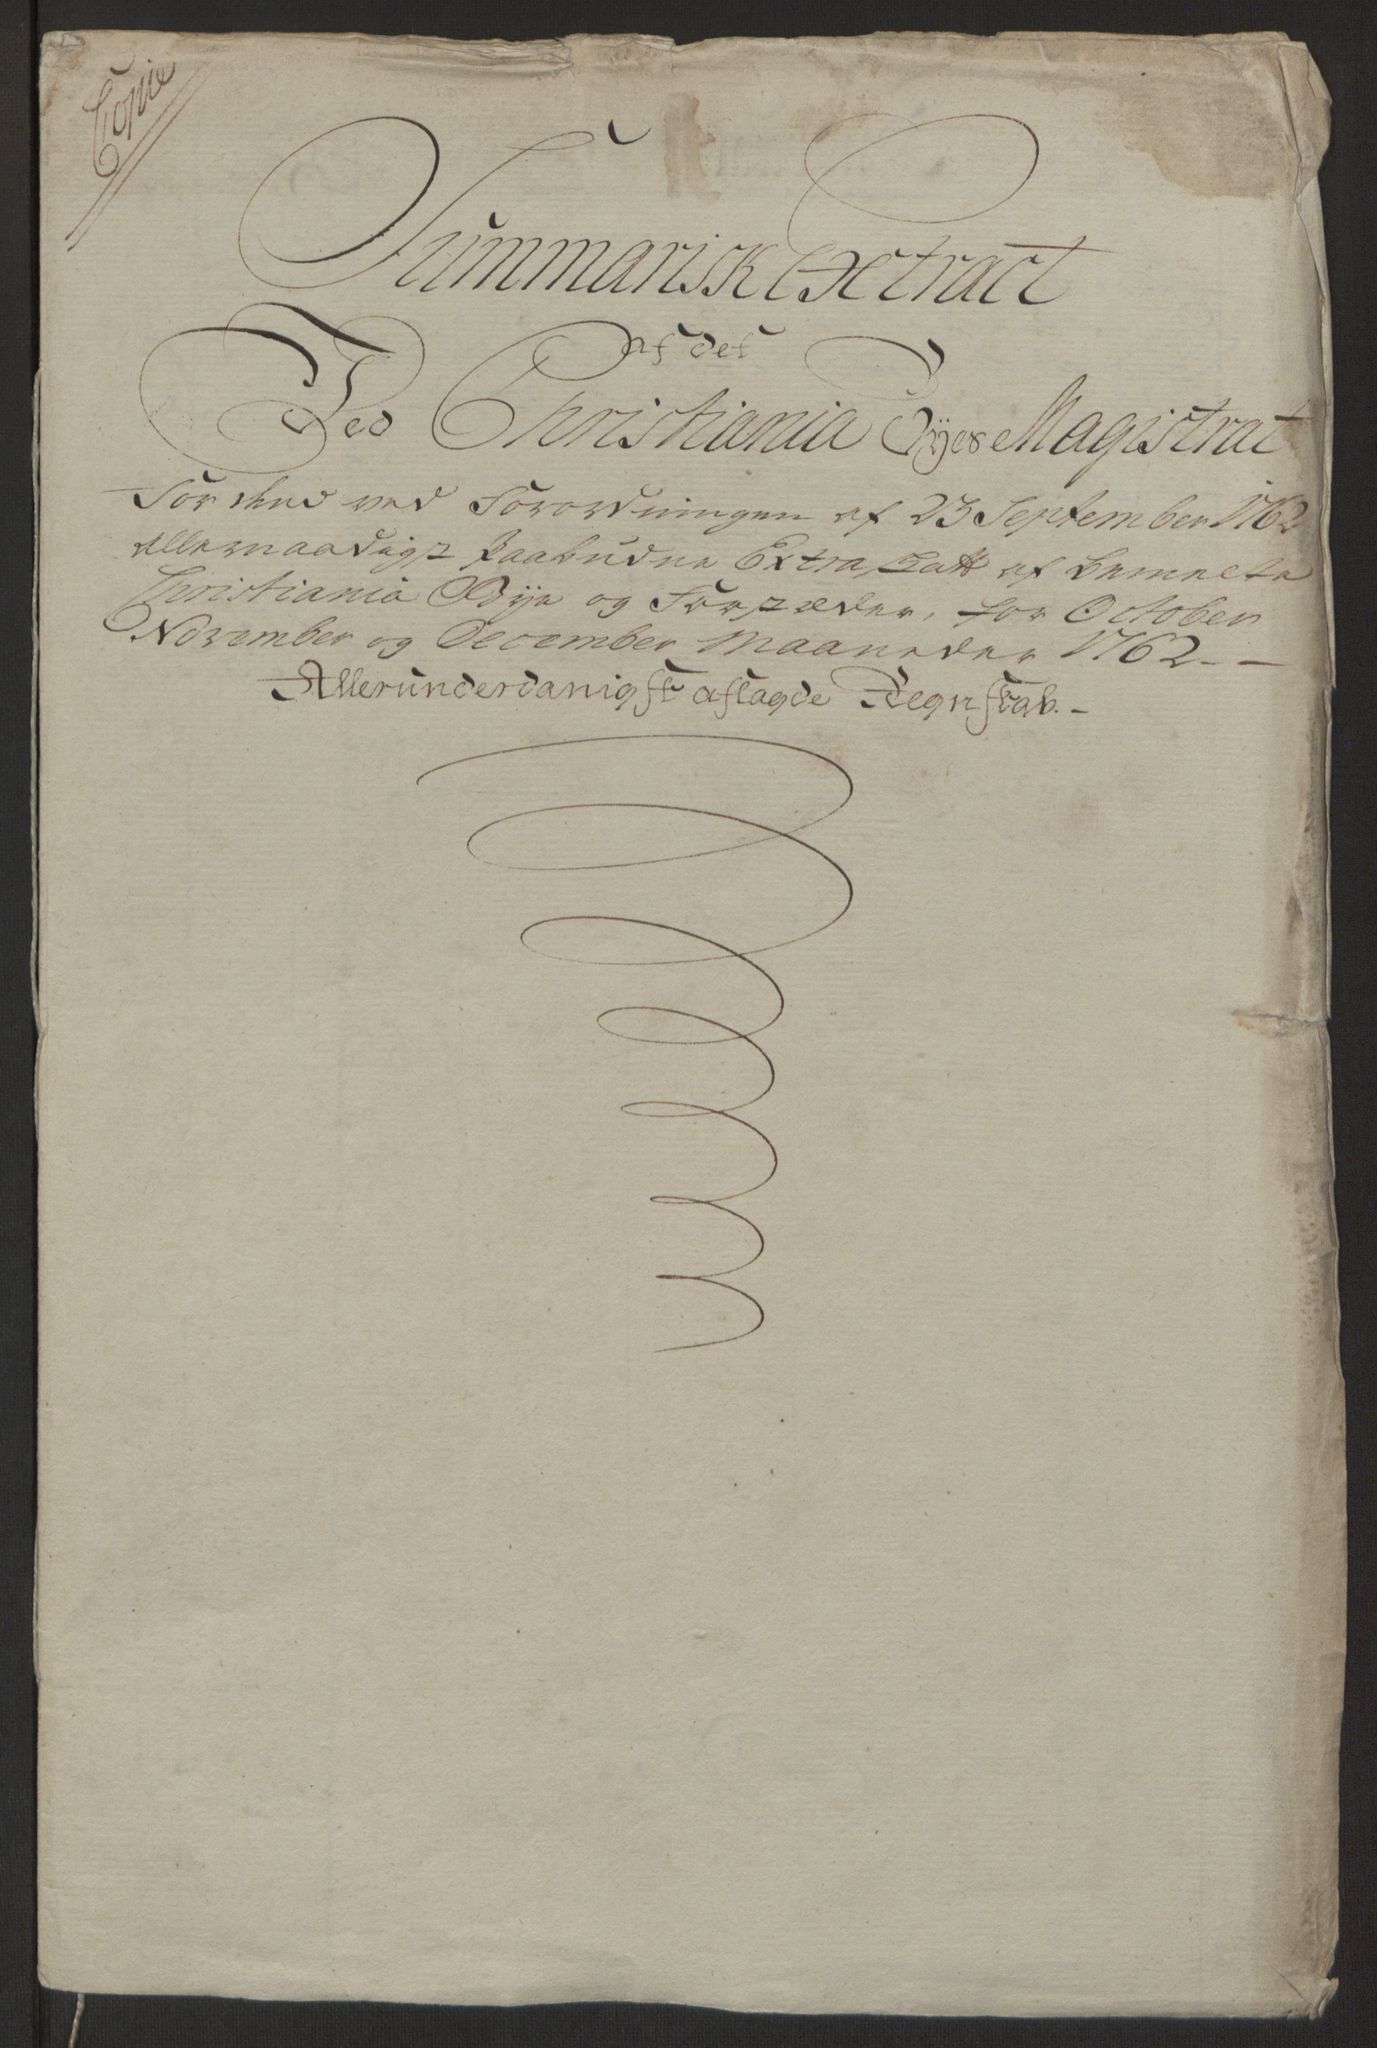 Copie
Summarisk Extract
af det
Ved Christiania Byes Magistrat
for den ved Forordningen af 23 September 1762
allernaadigst paabudne Extra Skatt af bemelte
Christiania Bye og Forstæder, for October
November og December Maaneder 1762 - -
Allerunderdanigst aflagde Regnskab. -